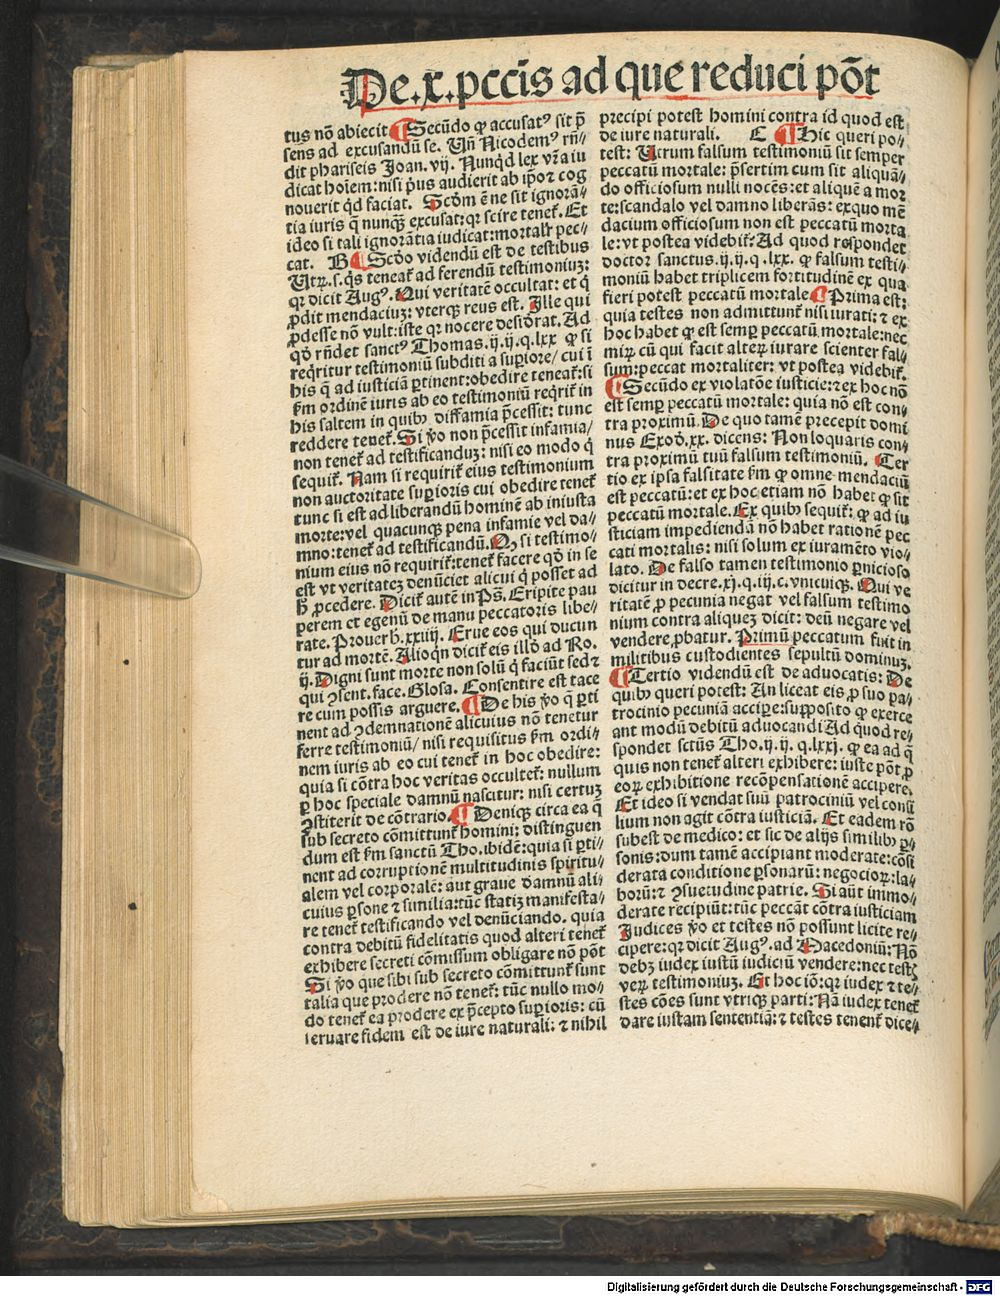 De.x.pccīs ad que reduci pōt
tus nō abiecit ¶ Secūdo ꝙ accusatꝰ sit p̄
sens ad excusandū se. Vn̄ Nicodemꝰ rn̄⸗
dit phariseis Joan. vij. Nunqd lex vr̄a iu
dicat hoīem: nisi pꝰus audierit ab ip̄o ⁊ cog
nouerit qd faciat. Scdm̄ ē ne sit ignorā⸗
tia iuris q̄ nunqꝫ excusat: qꝛ scire tenet̄. Et
ideo si tali ignorātia iudicat: mortalr̄ pec⸗
cat. B ¶ Scd̄o videndū est de testibus
Vtꝝ. s. qs teneat̄ ad ferendū testimoniuꝫ:
qꝛ dicit Augꝰ. Qui veritatē occultat: et q
ꝓdit mendaciuꝫ: vterqꝫ reus est. Ille qui
ꝓdesse nō vult: iste qꝛ nocere desid̄rat. Ad
qd̄ rn̄det sanctꝰ Thomas. ij. ij. q. lxx ꝙ si
reqritur testimoniū subditi a suꝑiore/ cui ī
his q̄ ad iusticiā ꝑtinent: obedire teneat̄: si
ẜm ordinē iuris ab eo testimoniū reqrit̄ in
his saltem in quibꝰ diffamia p̄cessit: tunc
reddere tenet̄. Si ꝟo non p̄cessit infamia/
non tenet̄ ad testificanduꝫ: nisi eo modo q
sequit̄. Nam si requirit̄ eius testimonium
non auctoritate suꝑioris cui obedire tenet̄
tunc si est ad liberandū hominē ab iniusta
morte: vel quacunqꝫ pena infamie vel da⸗
mno: tenet̄ ad testificandū. Qꝫ si testimo⸗
nium eius nō requirit̄: tenet̄ facere qd̄ in se
est vt veritateꝫ denūciet alicui q posset ad
h̄ ꝓcedere. Dicit̄ autē in Ps̄. Eripite pau
perem et egenū de manu peccatoris libe⸗
rate. Prouerb̄. xxiiij. Erue eos qui ducun
tur ad mortē. Alioqn dicit̄ eis illd̄ ad Ro.
ij. Digni sunt morte non solū q faciūt sed ⁊
qui ꝯsent. face. Glosa. Consentire est tace
re cum possis arguere. ¶ De his ꝟo q̄ ꝑti
nent ad ꝯdemnationē alicuius nō tenetur
ferre testimoniū/ nisi requisitus ẜm ordi⸗
nem iuris ab eo cui tenet̄ in hoc obedire:
quia si cōtra hoc veritas occultet̄: nullum
ꝑ hoc speciale damnū nascitur: nisi certuꝫ
ꝯstiterit de cōtrario. ¶ Deniqꝫ circa ea q̄
sub secreto cōmittunt̄ homini: distinguen
dum est ẜm sanctū Tho. ibidē: quia si ꝑti⸗
nent ad corruptionē multitudinis spiritu⸗
alem vel corporalē: aut graue damnū ali⸗
cuius ꝑsone ⁊ similia: tūc statiꝫ manifesta⸗
re tenet̄ testificando vel denūciando. quia
contra debitū fidelitatis quod alteri tenet̄
exhibere secreti cōmissum obligare nō pōt
Si ꝟo que sibi sub secreto cōmittunt̄ sunt
talia que prodere nō tenet̄: tūc nullo mo⸗
do tenet̄ ea prodere ex p̄cepto suꝑioris: cū
seruare fidem est de iure naturali: ⁊ nihil
precipi potest homini contra id quod est
de iure naturali. C ¶ Hic queri po⸗
test: Vtrum falsum testimoniū sit semper
peccatū mortale: p̄sertim cum sit aliquā⸗
do officiosum nulli nocēs: et aliquē a mor
te: scandalo vel damno liberās: exquo mē
dacium officiosum non est peccatū morta
le: vt postea videbit̄. Ad quod respondet
doctor sanctus. ij. ij. q. lxx. ꝙ falsum testi⸗
moniū habet triplicem fortitudinē ex qua
fieri potest peccatū mortale ¶ Prima est:
quia testes non admittunt̄ nisi iurati: ⁊ ex
hoc habet ꝙ est semꝑ peccatū mortale: nec
miꝝ cū qui facit alteꝝ iurare scienter fal⸗
sum: peccat mortaliter: vt postea videbit̄.
¶ Secūdo ex violatōe iusticie: ⁊ ex hoc nō
est semꝑ peccatū mortale: quia nō est con⸗
tra proximū. De quo tamē precepit domi
nus Exod̄. xx. dicens: Non loquaris con⸗
tra proximū tuū falsum testimoniū. Ter
tio ex ipsa falsitate ẜm ꝙ omne mendaciū
est peccatū: et ex hoc etiam nō habet ꝙ sit
peccatū mortale. Ex quibꝰ sequit̄: ꝙ ad iu
sticiam impediendā nō habet rationē pec
cati mortalis: nisi solum ex iuramēto vio⸗
lato. De falso tamen testimonio ꝑnicioso
dicitur in decre. xj. q. iij. c. vnicuiqꝫ. Qui ve
ritatē ꝓ pecunia negat vel falsum testimo
nium contra aliqueꝫ dicit: deū negare vel
vendere ꝓbatur. Primū peccatum fuit in
militibus custodientes sepultū dominuꝫ.
¶ Tertio videndū est de aduocatis: De
quibꝰ queri potest: An liceat eis ꝓ suo pa⸗
trocinio pecuniā acciꝑe: supposito ꝙ exerce
ant modū debitū aduocandi Ad quod re⸗
spondet sctūs Tho. ij. ij. q. lxxj. ꝙ ea ad q̄
quis non tenet̄ alteri exhibere: iuste pōt ꝓ
eoꝝ exhibitione recōpensationē accipere.
Et ideo si vendat suū patrociniū vel consi
lium non agit cōtra iusticiā. Et eadem rō
subest de medico: et sic de alijs similibꝰ ꝑ⸗
sonis: dum tamē accipiant moderate: cōsi
derata conditione ꝑsonarū: negocioꝝ: la⸗
borū: ⁊ ꝯsuetudine patrie. Si aūt immo⸗
derate recipiūt: tūc peccāt cōtra iusticiam
Judices ꝟo et testes nō possunt licite re⸗
cipere: qꝛ dicit Augꝰ. ad Macedoniū: Nō
debꝫ iudex iustū iudiciū vendere: nec testꝭ
veꝝ testimoniuꝫ. Et hoc iō: qꝛ iudex ⁊ te⸗
stes cōes sunt vtriqꝫ parti: Nā iudex tenet̄
dare iustam sententiā: ⁊ testes tenent̄ dice⸗
Digitalisierung gefördert durch die Deutsche Forschungsgemeinschaft - DFG